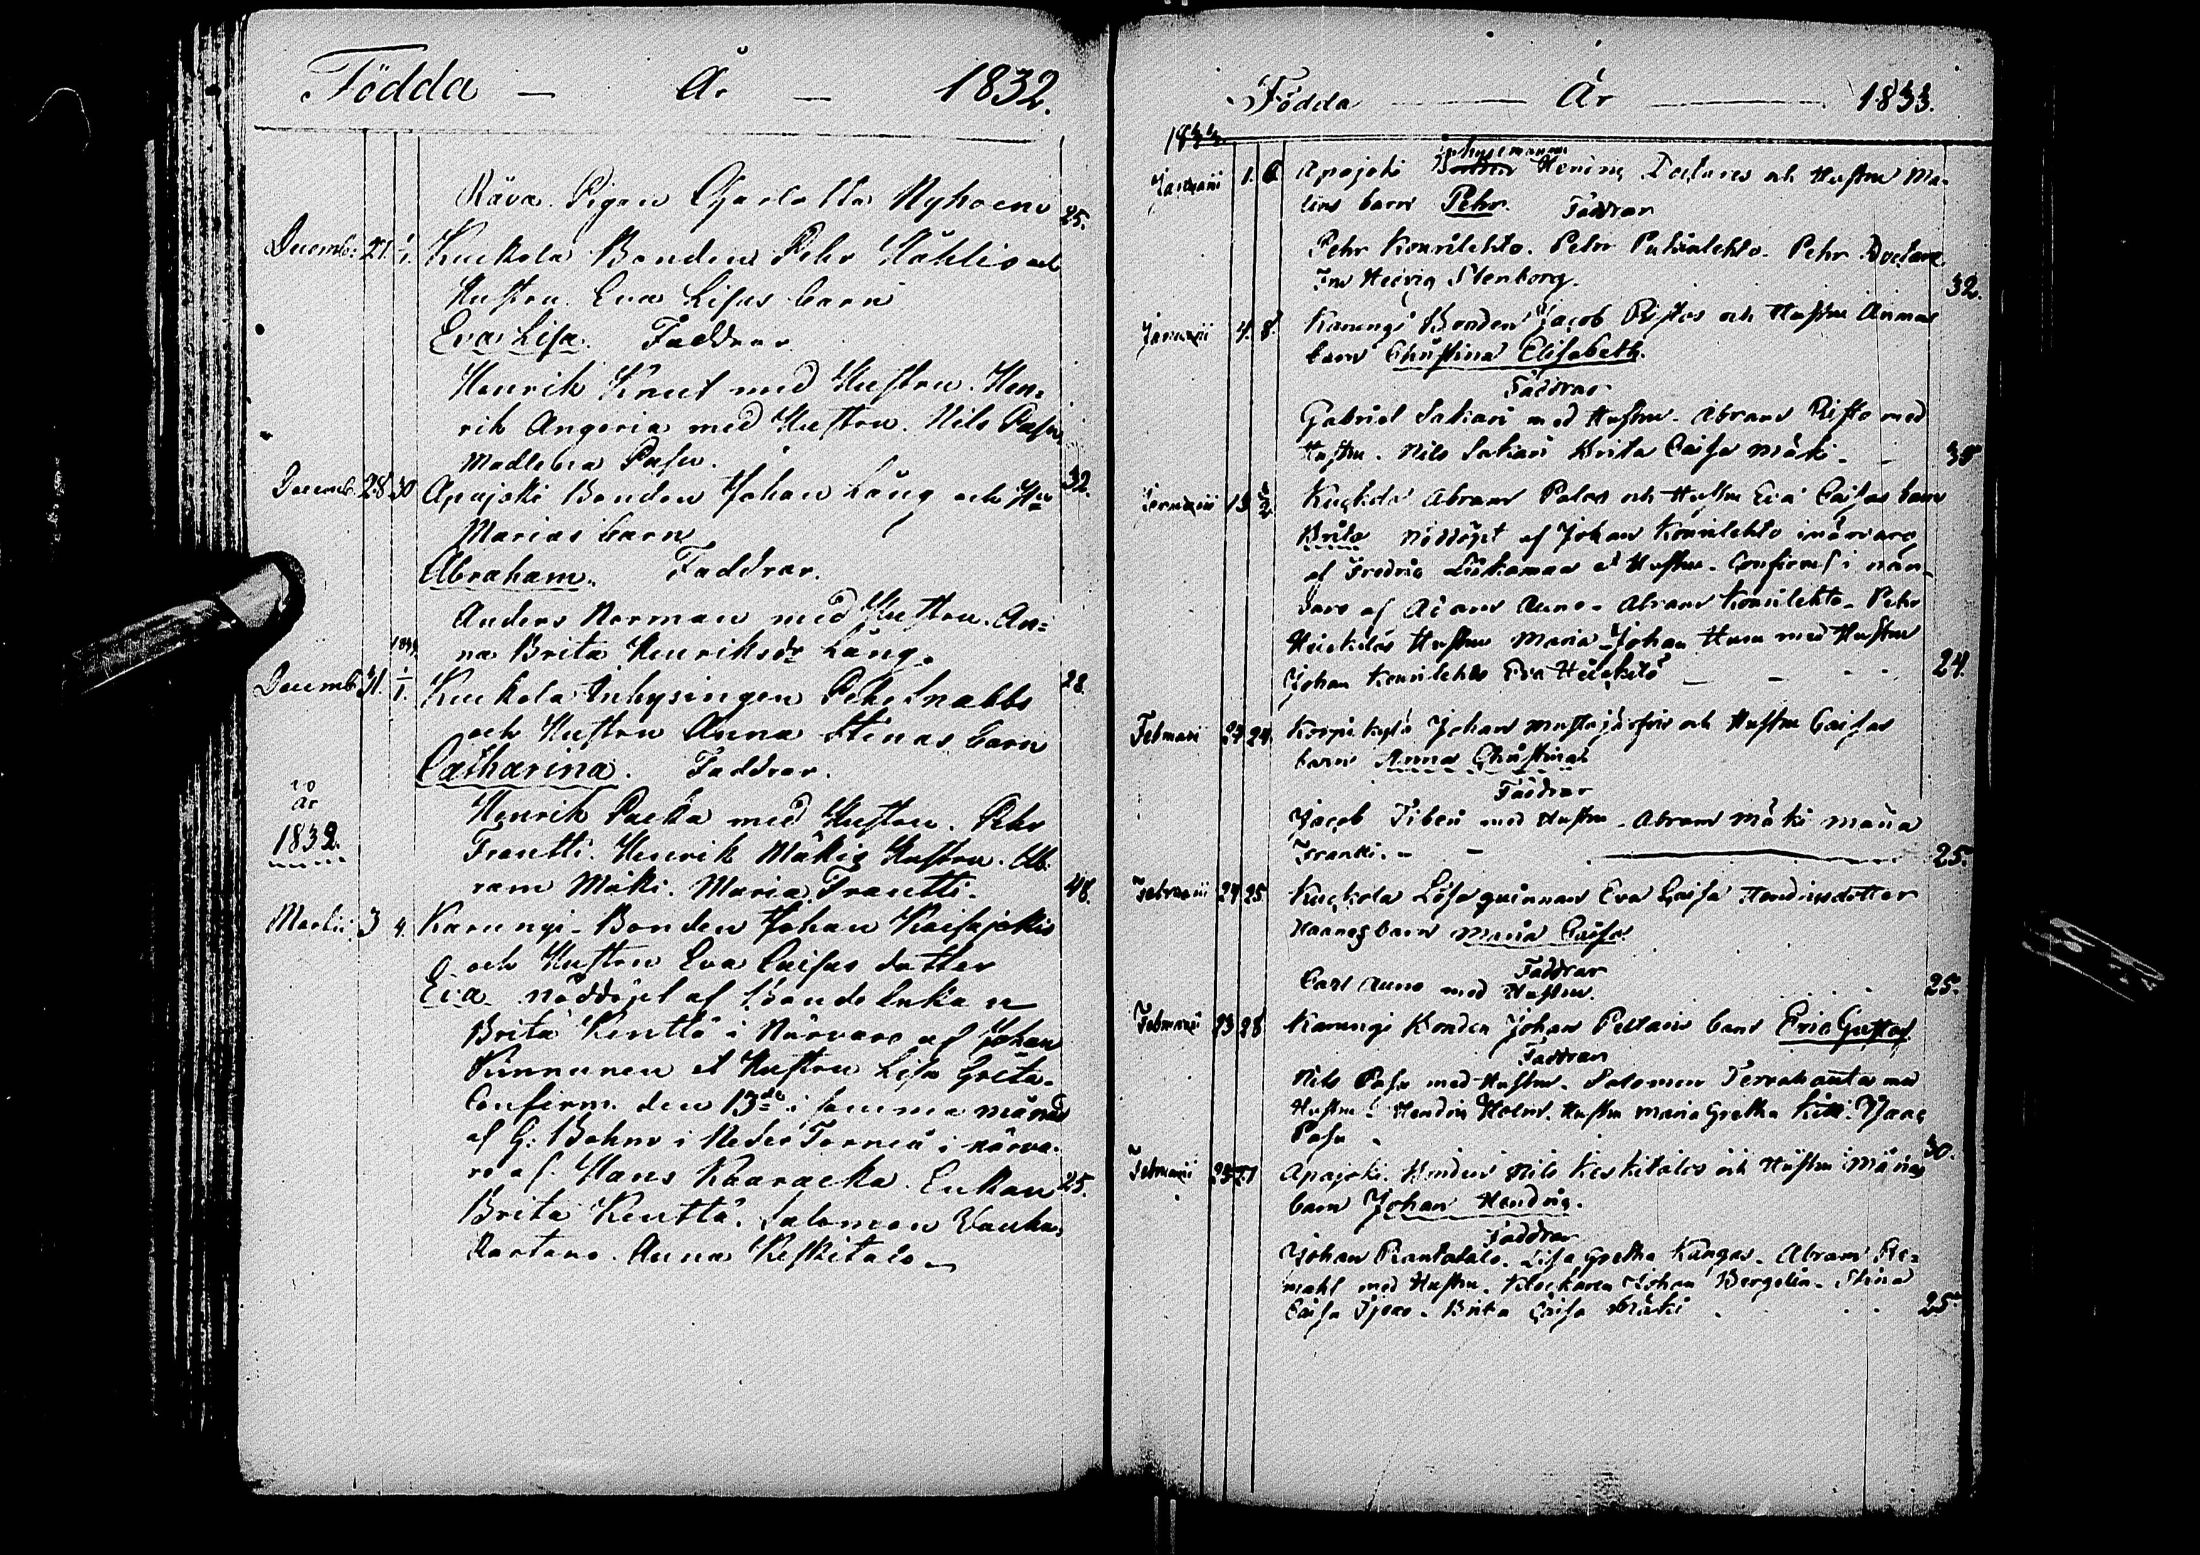 Födda — År — 1832.
Räva. Pigan Charlotta Nyholm 25.
Decemb: 27. 1/1. Kuckola Bonden Pehr Håhlis och
Hustru Eva Lisas barn
Eva Lisa. Faddrar
Henrik Knut med Hustru. Hen=
rik Angeria med Hustru. Nils Pasu
Madlena Pasu. 32.
Decemb. 28 30 Apajoki Bonden Johan Lång och H:u
Marias barn
Abraham. Faddrar.
Anders Norman med Hustru. An=
na Brita Henriksdr Lång. 28.
1833.
Decemb 31. 1/1. Kuckola Inhysingen Pehr Snabbs
och Hustru Anna Stinas barn
Catharina. Faddrar.
Henrik Packa med Hustru. Pehr
Frantti. Henrik Mäkis Hustru. Ab-
ram Mäki. Maria Frantti. 48.
år
1832.
Martii 3 4. Karungi Bonden Johan Kaisajokis
och Hustru Eva Caisas dotter
Eva nöddöpt af Bonde Enkan
Brita Kenttä i Närvaro af Johan
Kunnunen et Hustru Lisa Greta.
Confirm. den 13de i samma månad
af G: Bohm i Neder Torneå i närva-
ro af Hans Kaaracka. Enkan 25.
Brita Kenttä. Salomon Vanha,
Anna Keskitalo.
Födda — År — 1833.
1833.
inhysesmannen
Januarii 1. 6 Apajoki Bonden Henric Doctares och Hustru Ma-
lins barn Pehr. Faddrar
Pehr Kourilehto. Petter Putānlehto. Pehr Doctare
Jnr Hedvig Stenborg. 32.
Januarii 4. 8 Karungi Bonden Jacob Ristos och Hustru Annas
barn Christina Elisabeth.
Faddrar
Gabriel Sakari med Hustru. Abram Risto med
Hustru. Nils Sakari Brita Caisa Mäki. 35
Januarii 13 2 Kuckola Abram Palos och Hustru Eva Caisas barn
Brita Nöddöpt af Johan Kourilehto i närvaro
af Fredric Liikamaa et Hustru. Confirmt i när-
varo af Adam Auno. Abram Kourilehto. Pehr
Hustru Maria. Johan Huru med Hustru
Johan Kourilehto Eva 24.
Februarii 24. Korpikylä Johan Mustajärvis och Hustru Caisas
barn Anna Christina
Faddrar
Jacob med Hustru. Abram Mäki Maria
Frantti. 25.
Februarii 24 25 Kuckola Lösa quinnan Eva Caisa Hendricsdotter
barn Maria Caisa.
Faddrar
Carl Auno med Hustru. 25.
Februarii 23 28 Karungi Bonden Johan Pellais barn Eric Gustaf
Faddrar
Nils Pasu med Hustru. Salomon med
Hustru. Hendric Holms Hustru Maria Gretha Isaac
Pasu 30.
Februarii 25 Apajoki Bonden Nils Keskitalos och Hustru Marias
barn Johan Hendric.
Faddrar
Johan Rantatalo. Lisa Gretha Kangas. Abram Re-
mahl med Hustru. Klockaren Johan Bergelin. Stina
Caisa Brita Caisa Mäki 25.